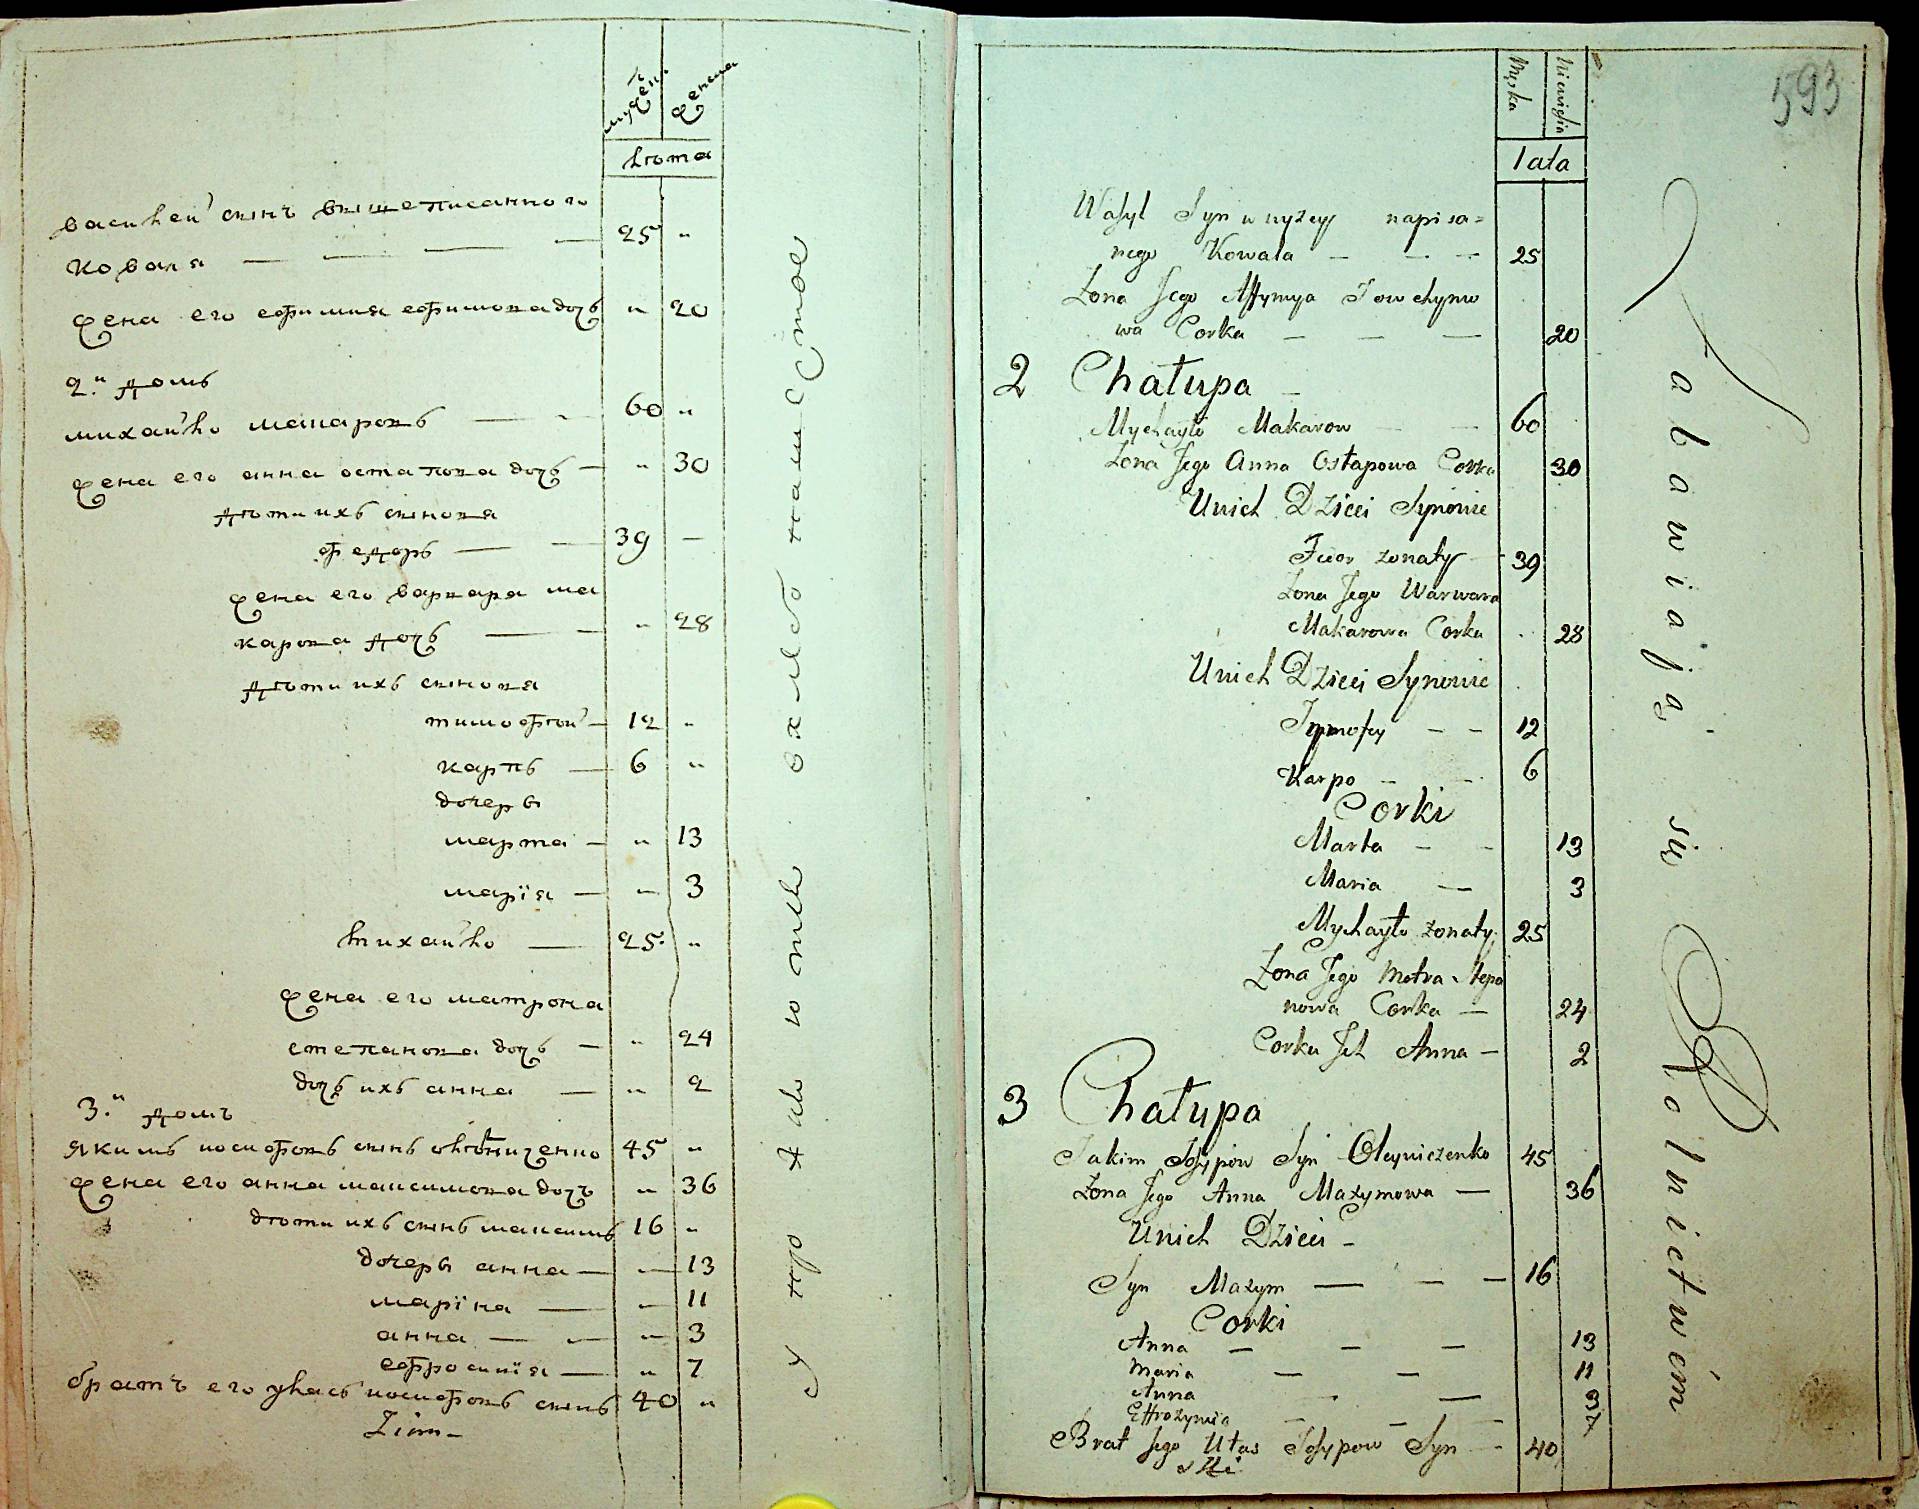 мужен.
женска
лѣта
василей сынъ вышеписанного
коваля — — — — 25 "
жена его ефимия ефимова дочь " 20
2.й домъ
михайло макаровъ — — 60 "
жена его анна остапова дочь — " 30
дѣти ихъ сынова
федоръ — — 39 —
жена его варвара ма
карова дочь — — " 28
дѣти ихъ сынова
тимофѣй — 12 "
карпъ — 6 "
дочеры
марта — " 13
марїя — — 3
михайло — 25. "
жена его матрона
степанова дочь — " 24
дочь ихъ анна — " 2
3.й домъ
якимъ иосифовъ сынъ 45 "
жена его анна максимова дочь " 36
дѣти ихъ сынъ максимъ 16 "
дочеры анна — — 13
марїна — — 11
анна — — — 3
ефросинїя — " 7
братъ его уласъ иосифовъ сынъ 40 "
593
Męska
Niewieścia
lata
Wasyl Syn wyżey napisa=
nego Kowala — — — 25
Zona Jego Affymya Jowchymo
wa Corka — — — 20
2 Chałupa —
Mychayło Makarow — — 60
Zona Jego Anna Ostapowa Corka 30
Unich Dzieci Synowie
Fedor żonaty — 39
Zona Jego Warwara
Makarowa Corka 28
Unich Dzieci Synowie
Tymofey — — 12
Karpo — — 6
Corki
Marta — — 13
Maria — 3
Mychayło żonaty 25
Zona Jego Motra Stepa
nowa Corka — 24
Corka Jch Anna — 2
3 Chałupa
Jakim Josypow Syn Oleyniczenko 45
Zona Jego Anna Maxymowa — 36
Unich Dzieci —
Syn Maxym — — — 16
Corki
Anna — — — 13
Maria — — 11
Anna — — 3
Effrozynia — — — 7
Brat Jego Ułas Josypow Syn — 40
Zabawiają się Rolnictwem